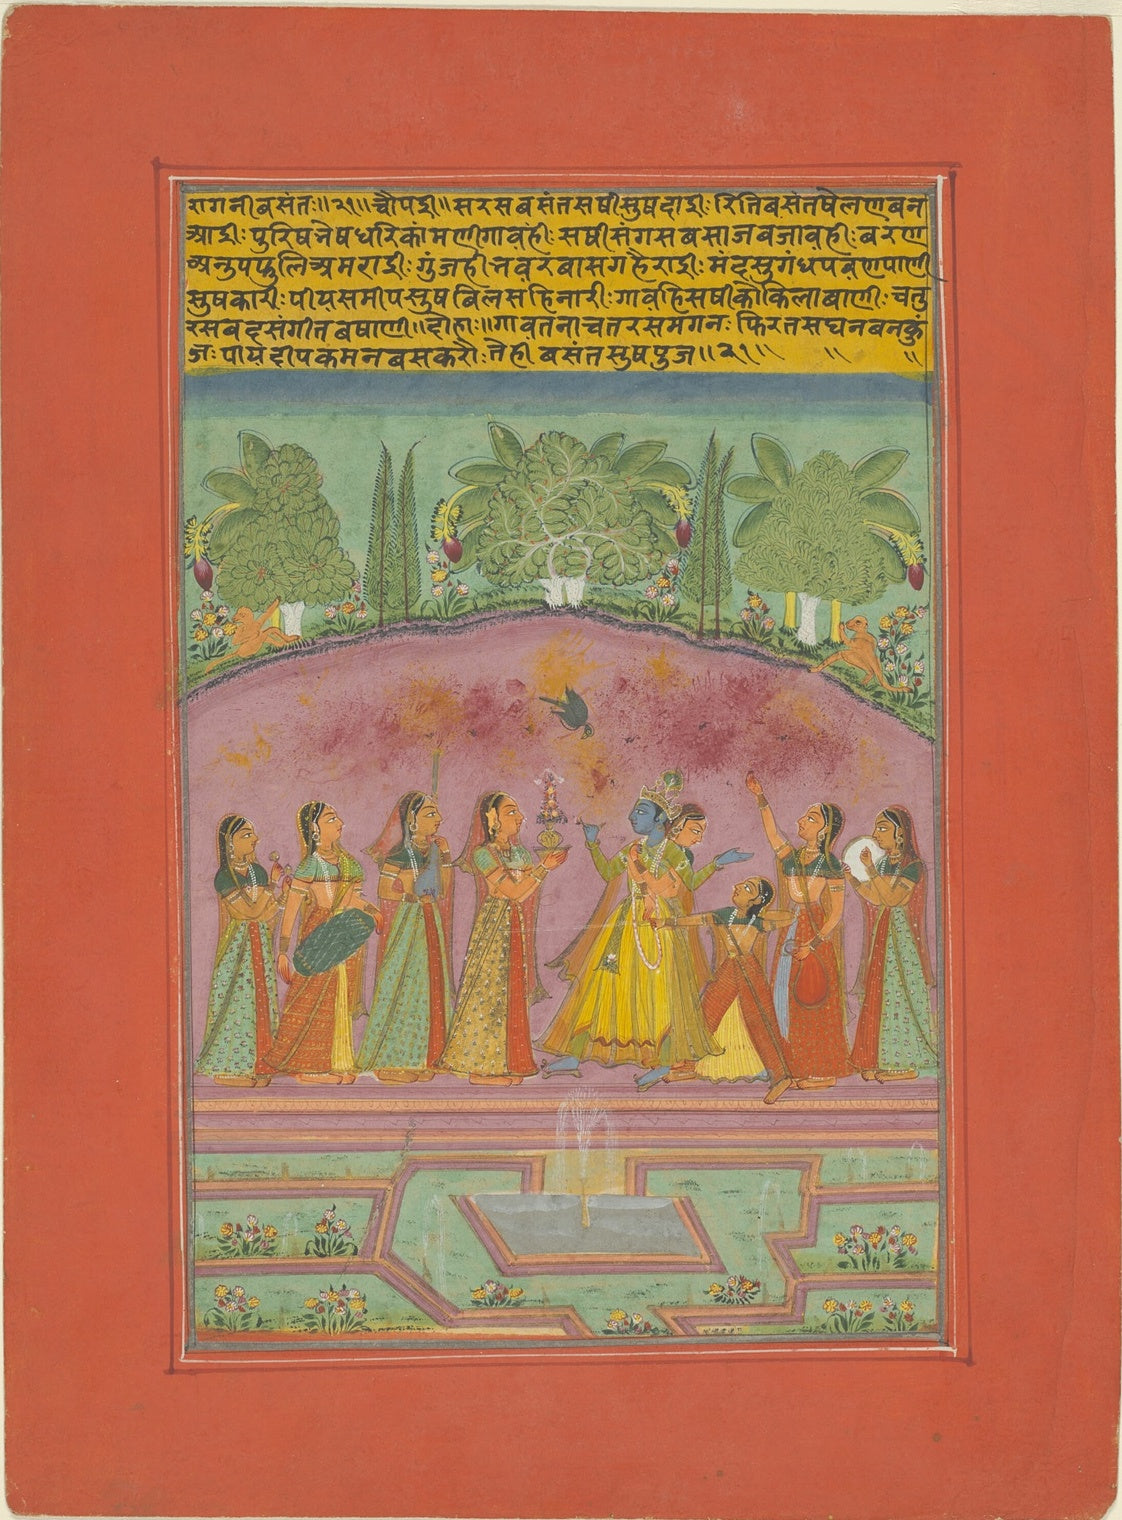 रागनीबसंतः॥२१॥चौपई॥सरसबसंतसषीसुषदाईः रितिबसंतषेलणबन
आईः पुरिषनेषधरिकांमणीगावहीः सषीसंगसबसाजबजावहीः बरण
अनुपफुलिअमराईः गुंजही बासग मंदसुगंधपवणपाणी
सुषकारीः पीयसमीपसुषबिलसहिनारीः गावहिसषीकौकिलाबाणीः चतु
रसबदसंगीतबषाणी॥दोहाः॥गावतनाचतरसमगनः फिरतसघनबनकुं
जः पीयदीपकमनबसकरौः बसंतसुषपुज॥२१॥ ॥ ॥